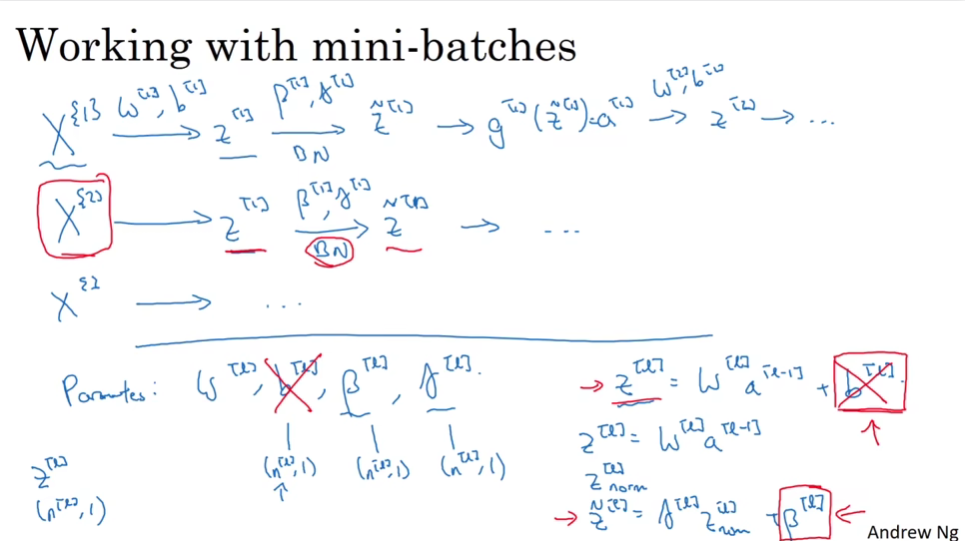 Working with mini-batches
X^{1} → W^[1], b^[1] z^[1] → β^[1], γ^[1] BN z̃^[1] → g^[1](z̃^[1]) = a^[1] → W^[2], b^[2] z^[2] → ...
X^{2} → z^[1] → β^[1], γ^[1] BN z̃^[1] → ...
X^{3} → ...
Parameters: W^[l], b^[l], β^[l], γ^[l].
(n^[l], 1) (n^[l], 1) (n^[l], 1)
z^[l]
(n^[l], 1)
→ z^[l] = W^[l] a^[l-1] + b^[l].
z^[l] = W^[l] a^[l-1]
z^[l]norm
→ z̃^[l] = γ^[l] z^[l]norm + β^[l] ←
Andrew Ng